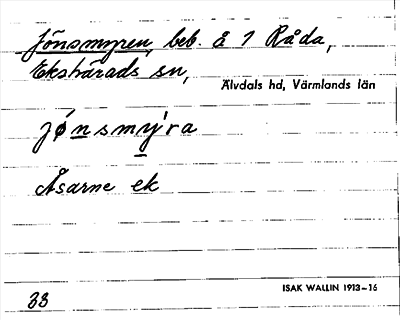 Jönsmyren, beb. å 1 Råda,
Ekshärads sn,
Älvdals hd, Värmlands län
jǿnsmy̗ra
Åsarne ek
ISAK WALLIN 1913–16
33